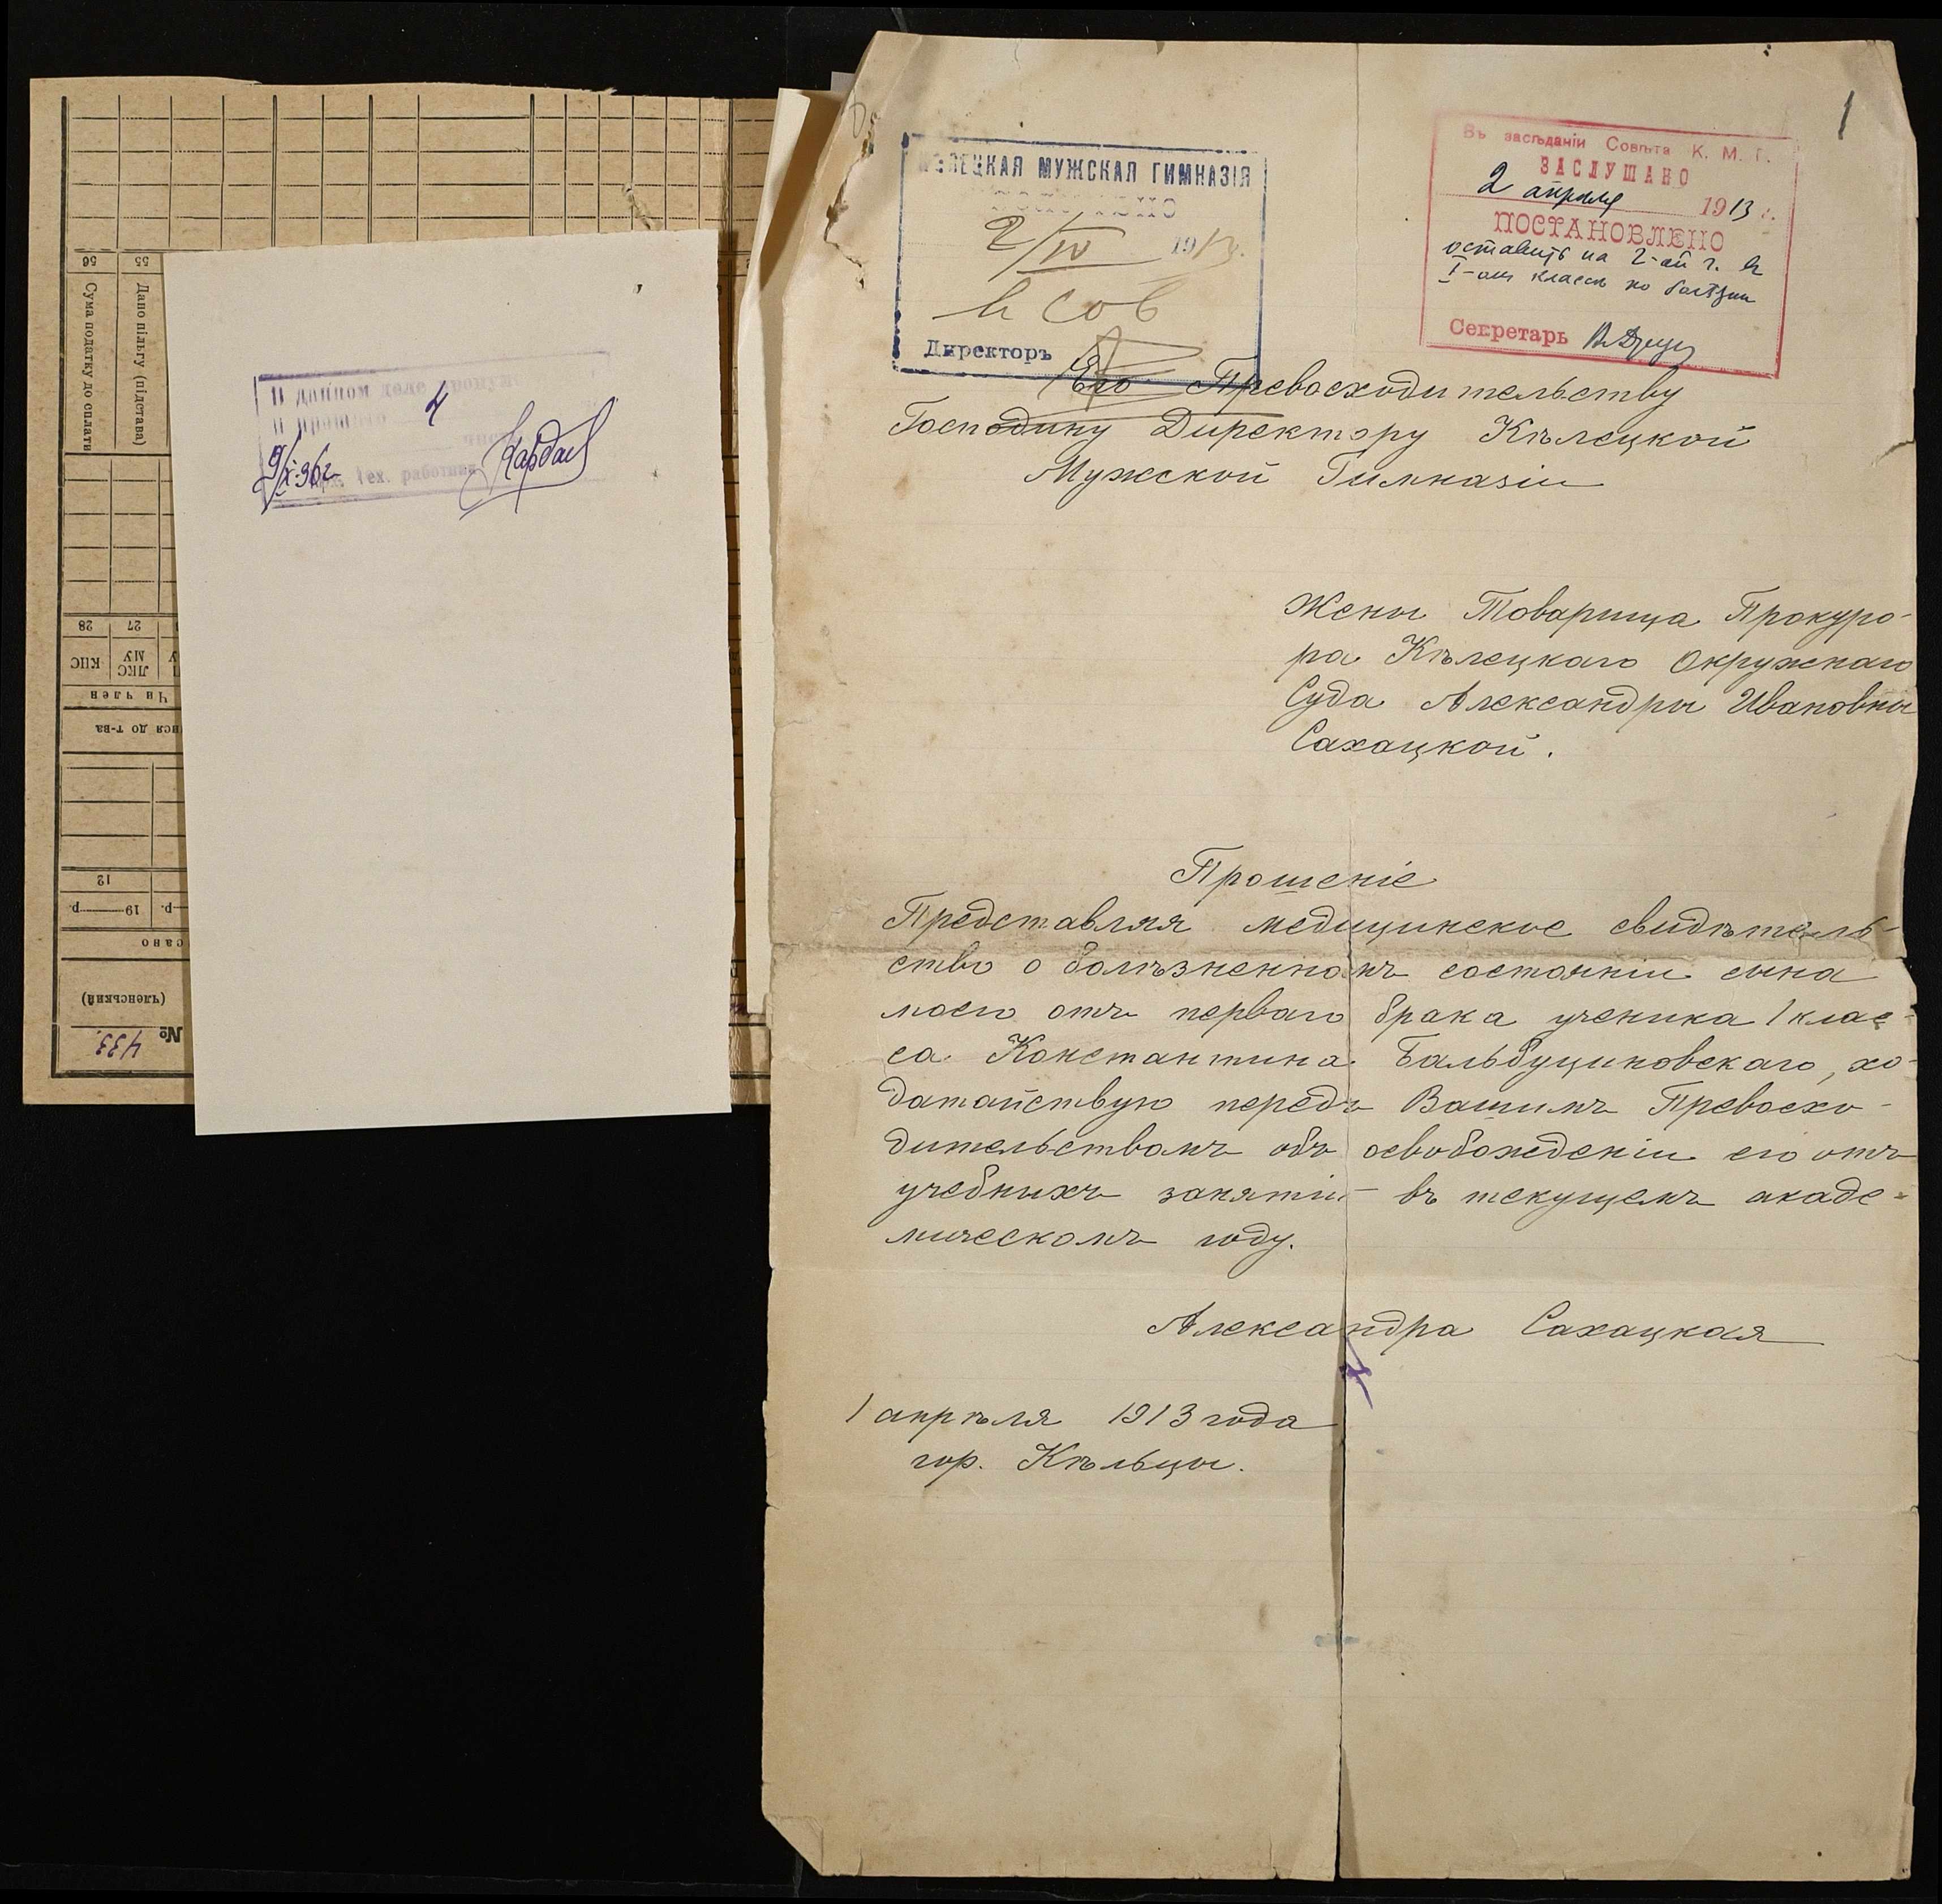 56
55
Сума податку до сплати
Дано пільгу (підстава)
28
27
КПС
ЛКС
МУ
Чи член
ися до т-ва
12
19 р.
р.
(членський)
№ 433.
В данном деле пронуме
4
9/X-96г.
Тех. работник
1
МУЖСКАЯ ГИМНАЗІЯ
2/IV 1913.
въ сов
Директоръ
Въ засѣданіи Совѣта К. М. Г.
ЗАСЛУШАНО
2 апрѣля 1913 г.
ПОСТАНОВЛЕНО
оставить на 2-ой г. въ
I-омъ классѣ по болѣзни
Секретарь
Его Превосходительству
Господину Директору Кѣлецкой
Мужской Гимназіи
Жены Товарища Прокуро-
ра Кѣлецкаго Окружнаго
Суда Александры Ивановны
Сахацкой.
Прошеніе
Представляя медицинское свидѣтель-
ство о болѣзненномъ состояніи сына
моего отъ перваго брака ученика 1 клас-
са Константина Бальбуциновскаго, хо-
датайствую передъ Вашимъ Превосхо-
дительствомъ объ освобожденіи его отъ
учебныхъ занятій въ текущемъ акаде-
мическомъ году.
Александра Сахацкая
1 апрѣля 1913 года
гор. Кѣльцы.